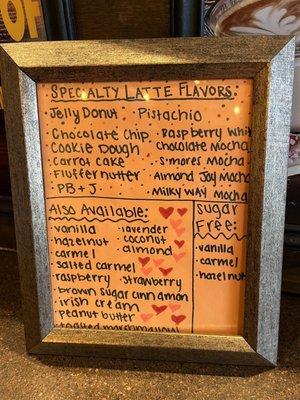 Specialty Latte Flavors:
Jelly Donut · Pistachio
· Chocolate Chip Cookie Dough
· Carrot Cake
· Fluffernutter
· PB + J
· Raspberry Whit
Chocolate Mocha
· S'mores Mocha
· Almond Joy Mocha
· Milky Way Mocha
Also Available:
· vanilla
· hazelnut
· carmel
· salted carmel
· raspberry
· brown sugar cinnamon
· irish cream
· peanut butter
· toasted marshmallow
· lavender
· coconut
· almond
· strawberry
Sugar
Free:
· vanilla
· carmel
· hazelnut